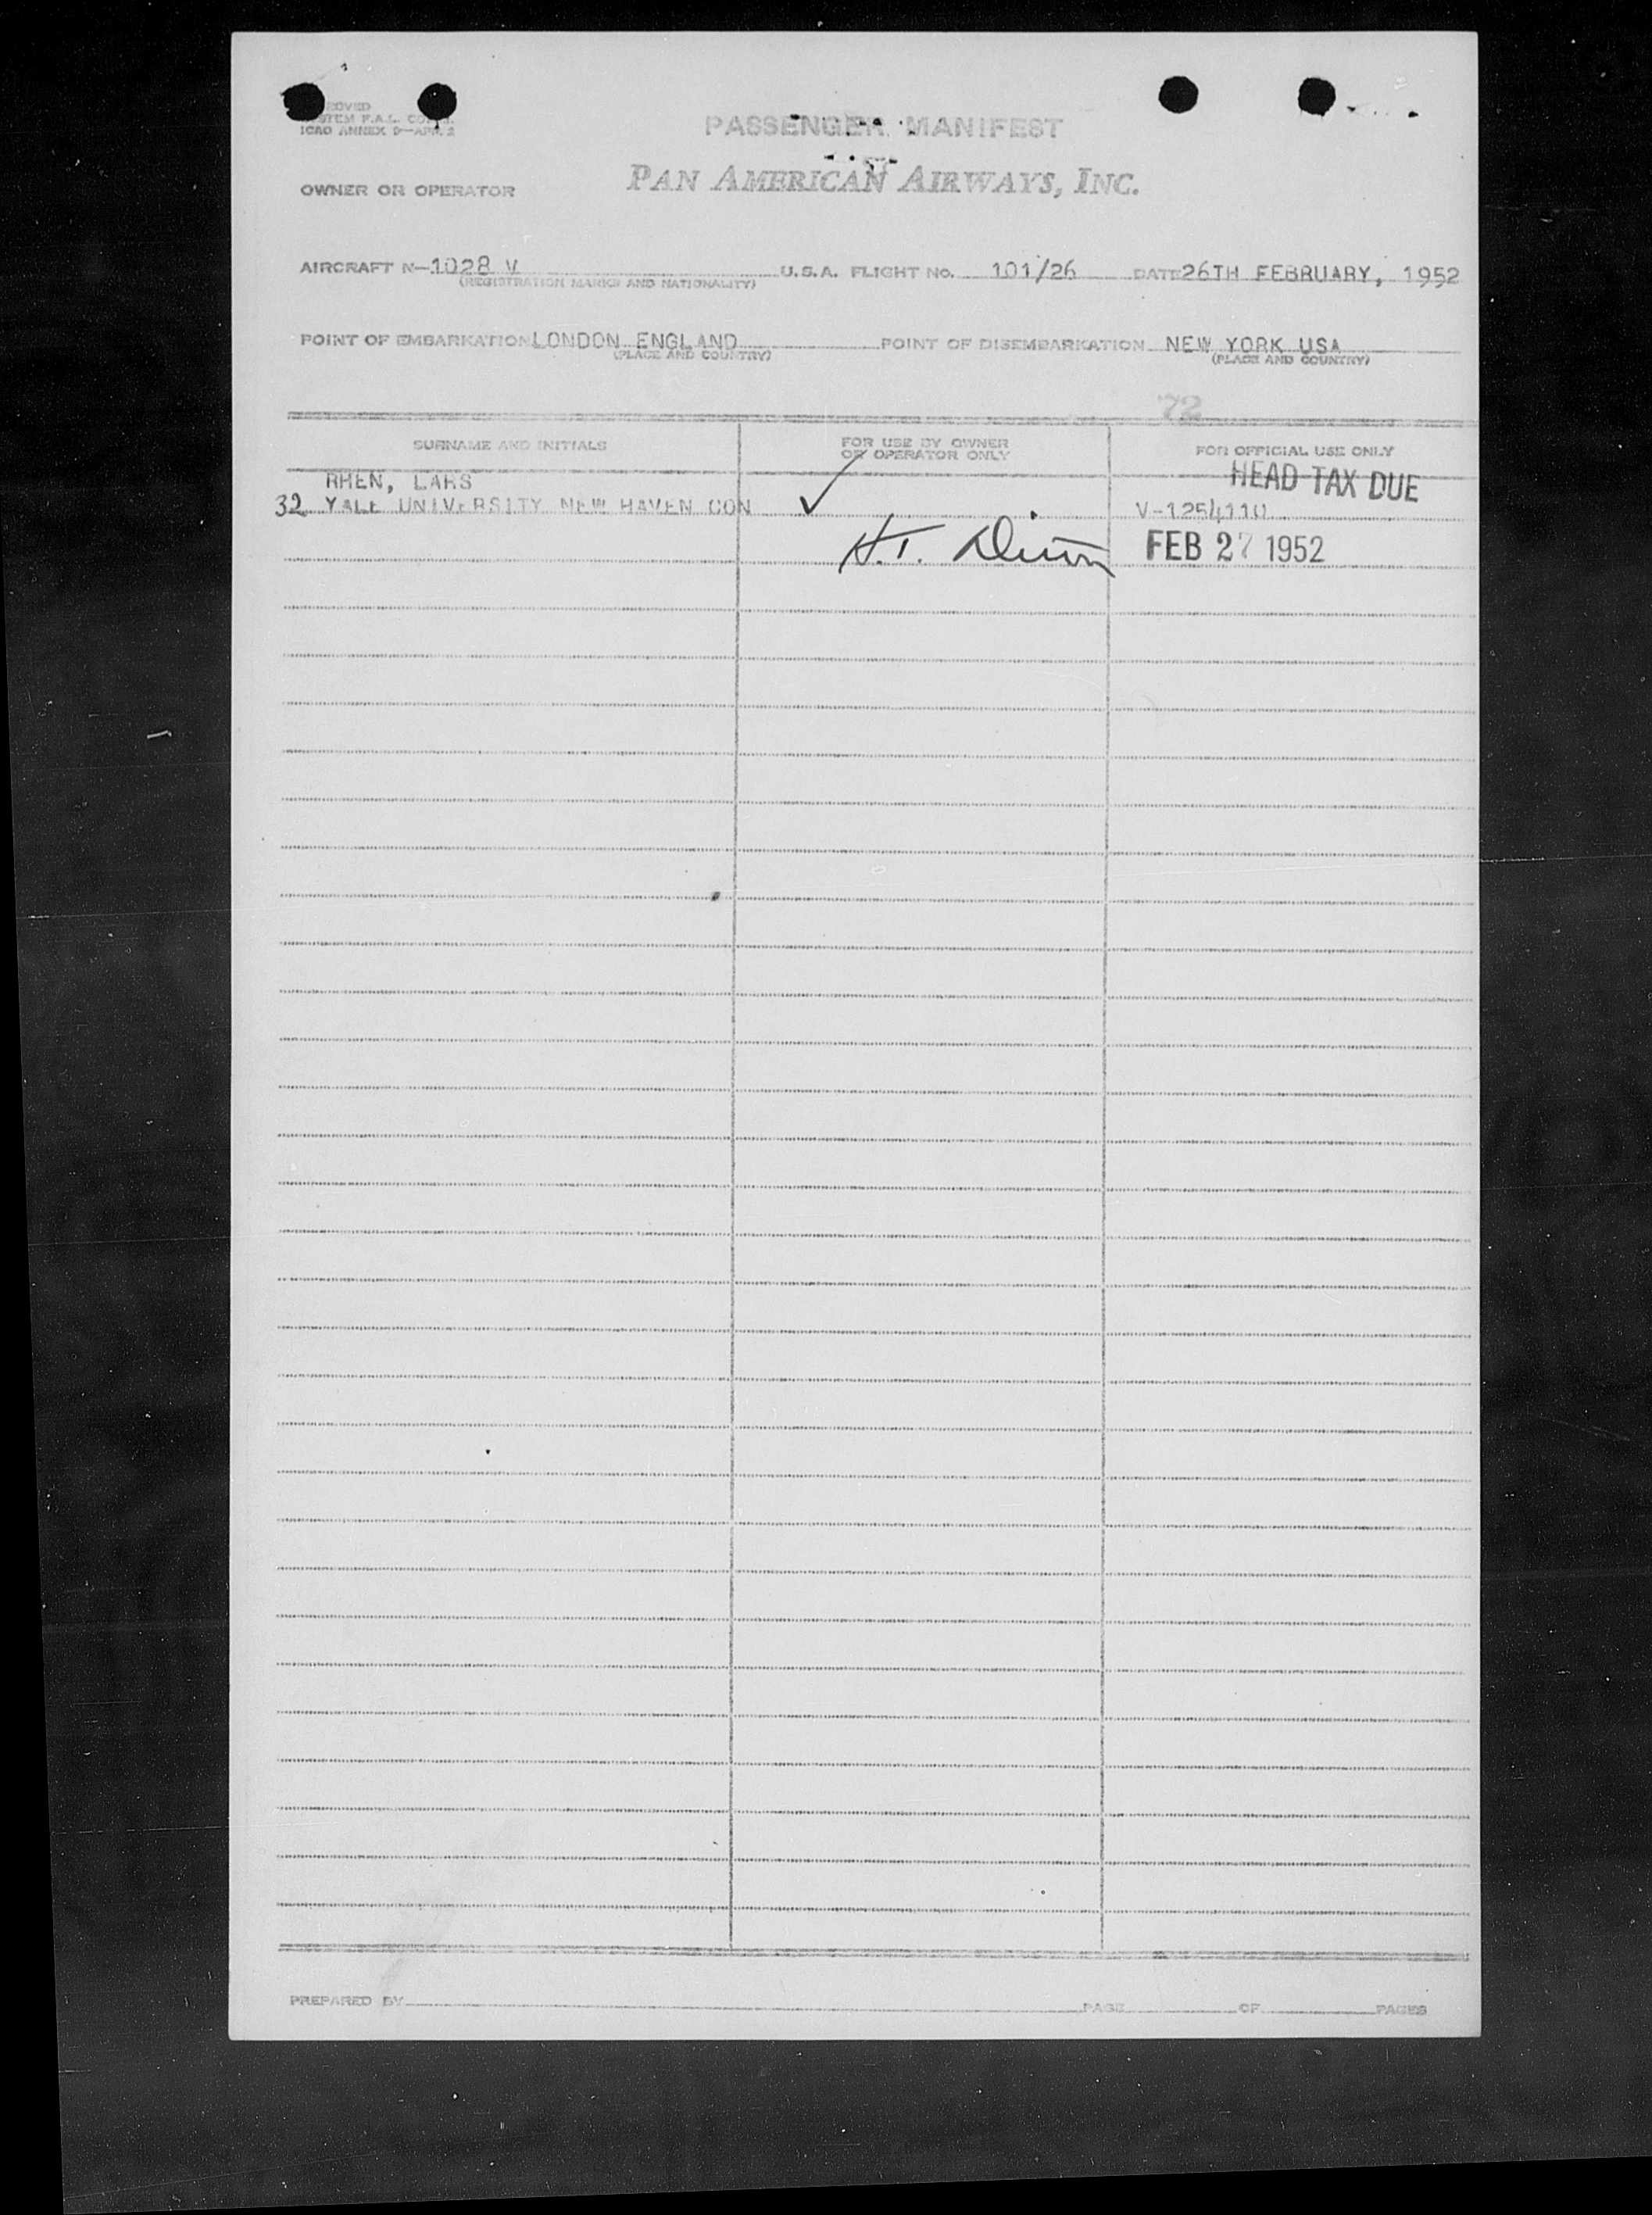 ICAO ANNEX 9—APP. 2
PASSENGER MANIFEST
OWNER OR OPERATOR
PAN AMERICAN AIRWAYS, INC.
AIRCRAFT N-1028 V U.S.A. FLIGHT NO. 101/26 DATE 26TH FEBRUARY, 1952
(REGISTRATION MARKS AND NATIONALITY)
POINT OF EMBARKATION LONDON ENGLAND POINT OF DISEMBARKATION NEW YORK USA
(PLACE AND COUNTRY) (PLACE AND COUNTRY)
72
SURNAME AND INITIALS
FOR USE BY OWNER
OR OPERATOR ONLY
FOR OFFICIAL USE ONLY
RHEN, LARS
HEAD TAX DUE
32 YALE UNIVERSITY NEW HAVEN CON ✓ V-1254110
H.T. FEB 27 1952
PREPARED BY PAGE OF PAGES